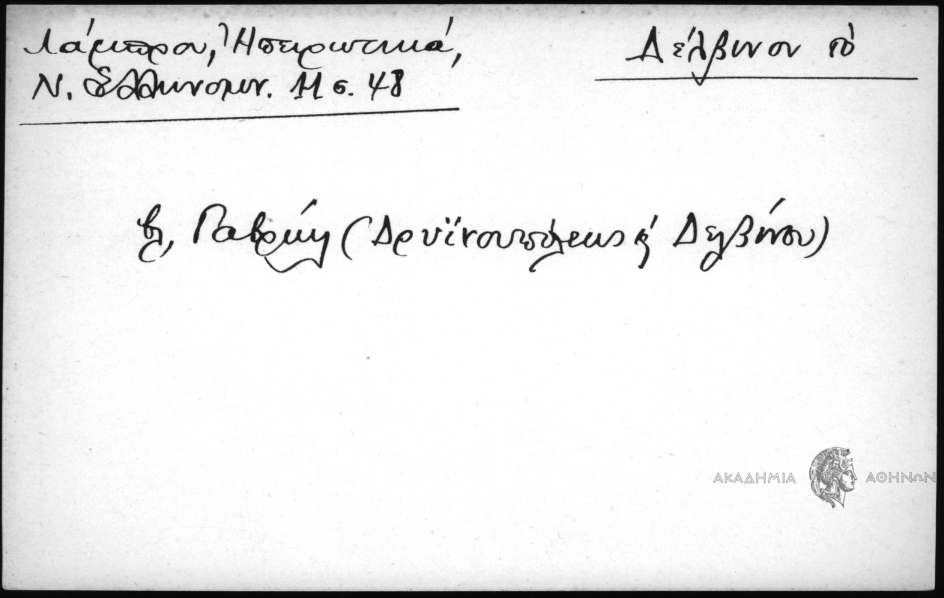 Λάμπρου, Ἠπειρωτικά,
Ν. Ἑλληνομν. 11 σ. 48
Δέλβινον τὸ
βλ, Γαβριὴλ (Δρυϊνουπόλεως ἢ Δελβίνου)
ΑΚΑΔΗΜΙΑ ΑΘΗΝΩΝ